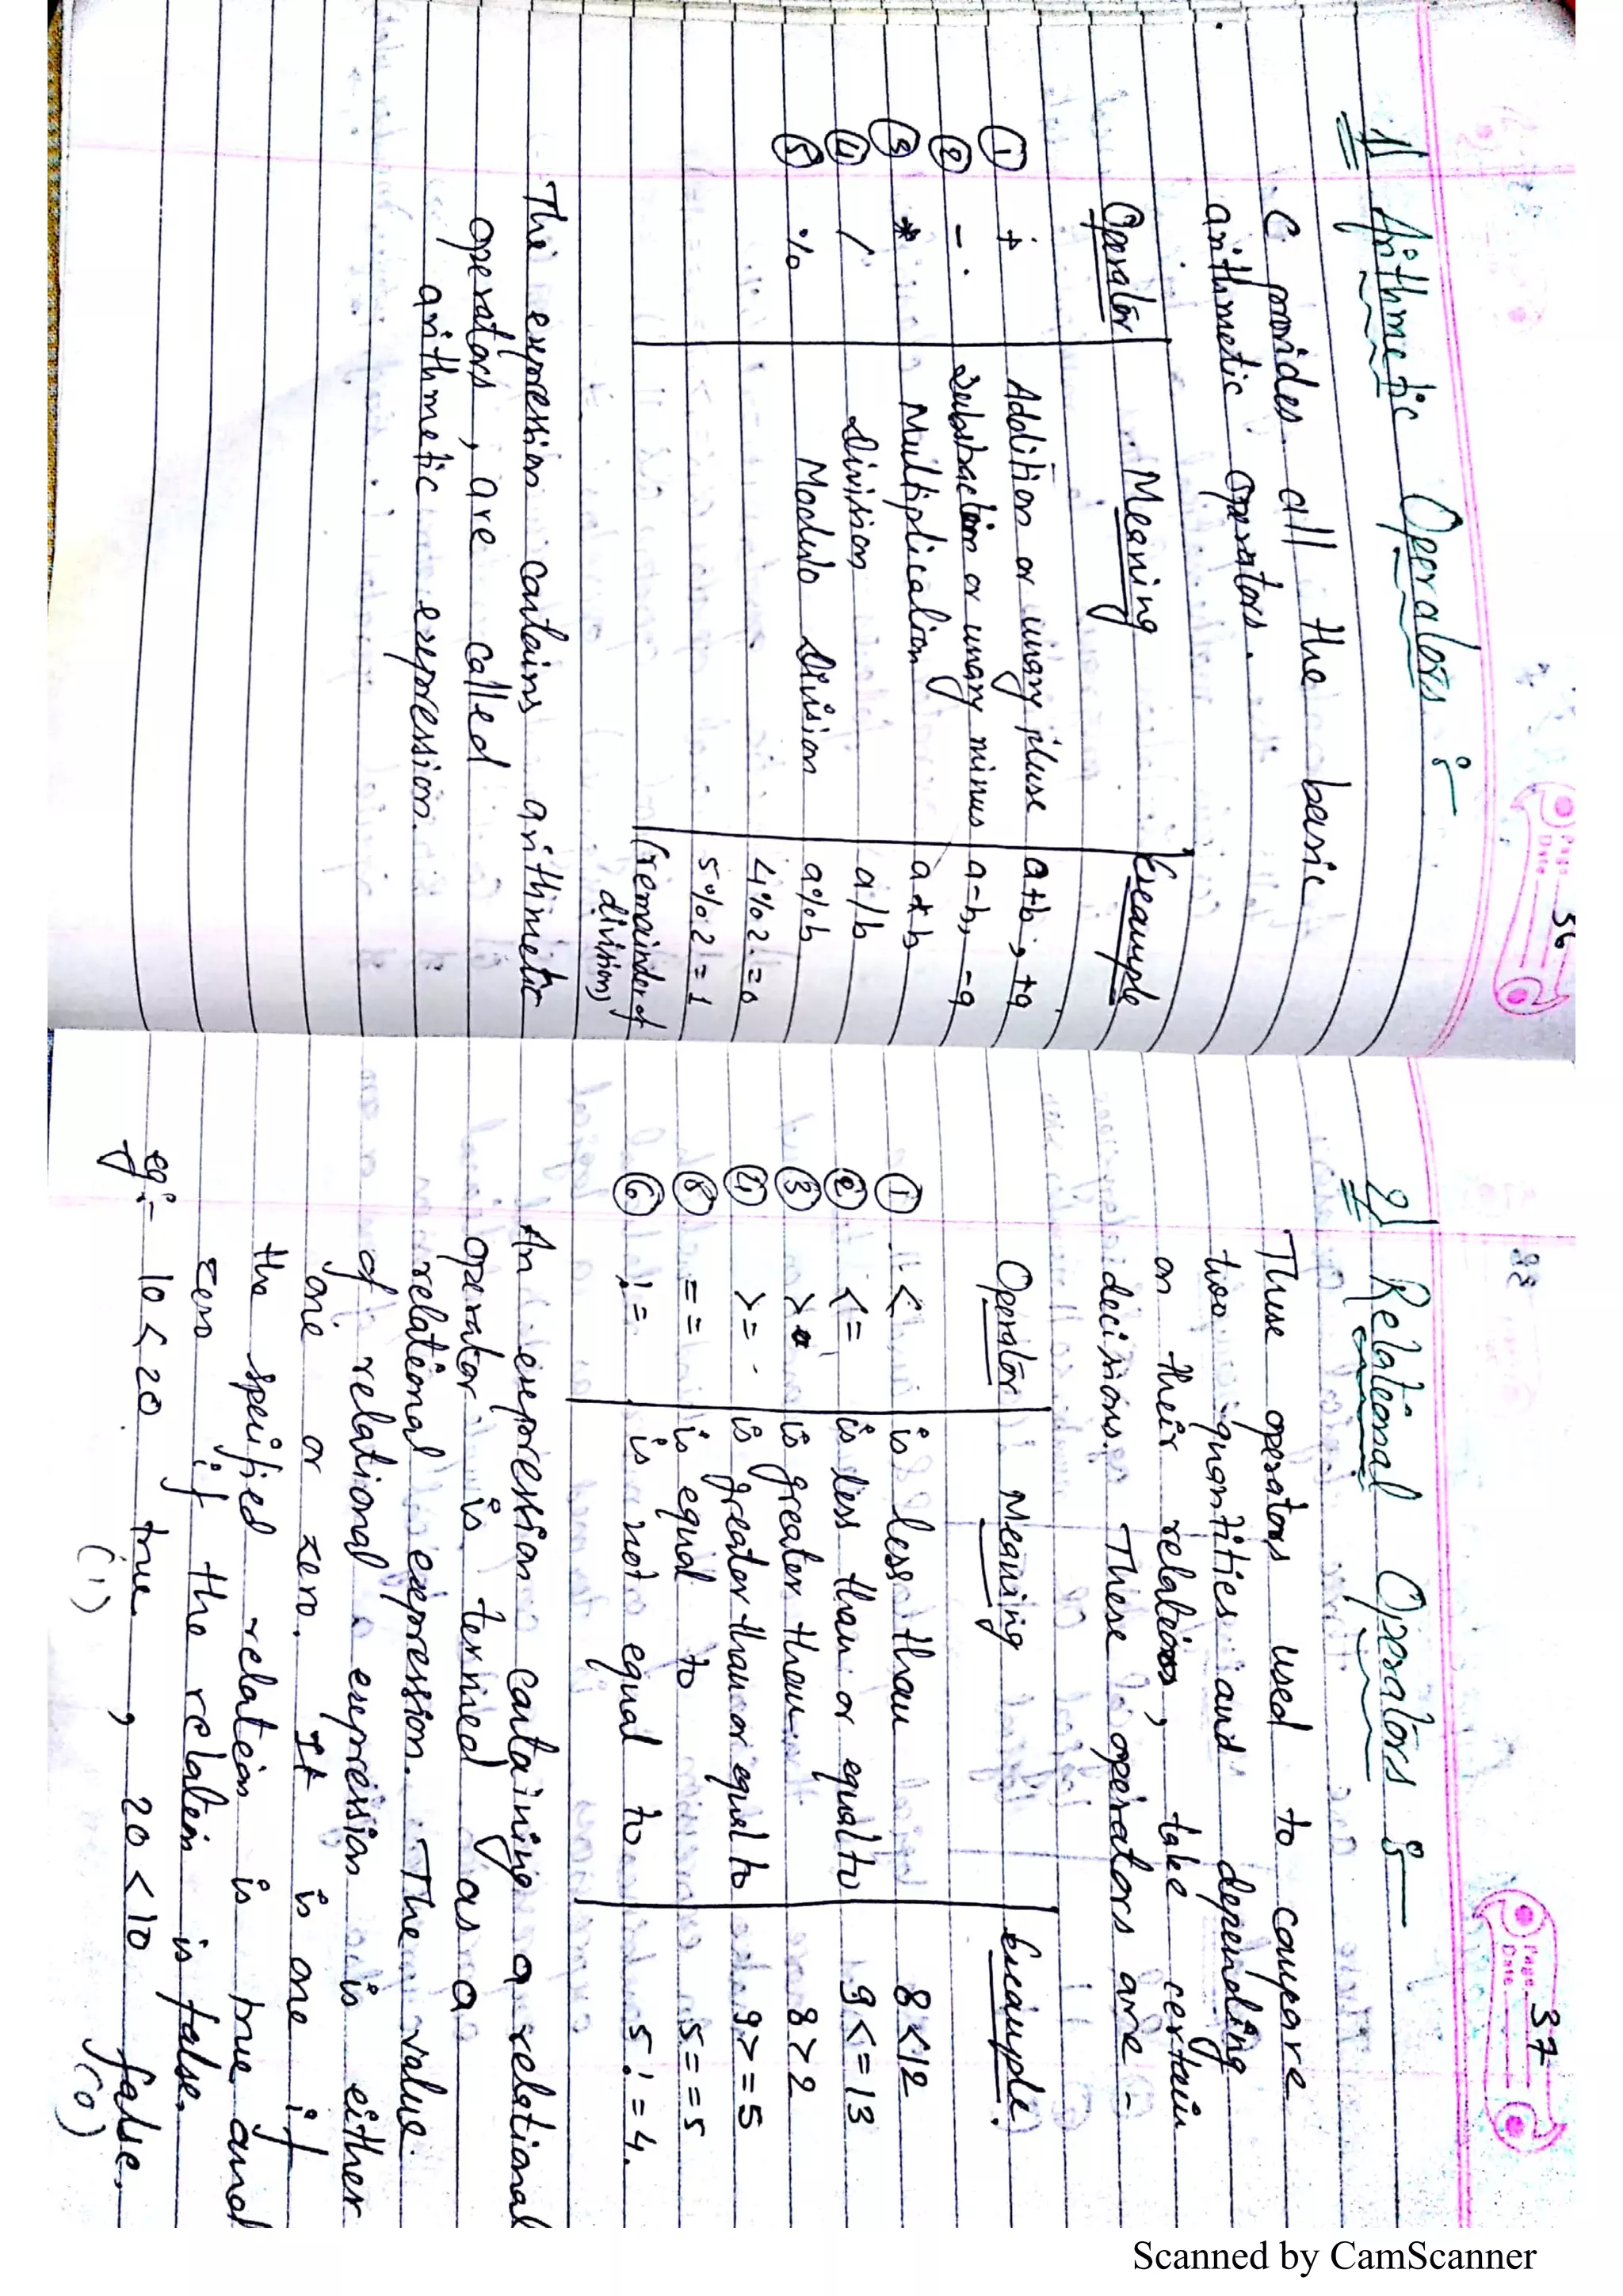 Page 36
Date
1) Arithmetic Operators :-
C provides all the basic
arithmetic operators.
Operator Meaning Example
① + Addition or unary pluse a+b, +a
② - Substraction or unary minus a-b, -a
③ * Multiplication a*b
④ / Division a/b
⑤ % Modulo Division a%b
4%2=0
5%2=1
(remainder of
division)
The expression contains arithmetic
operators, are called
arithmetic expression.
Page 37
Date
2) Relational Operators :-
These operators used to compare
two quantities and depending
on their relation, take certain
decisions. These operators are -
Operator Meaning Example.
① < is less than 8<12
② <= is less than or equal to 9<=13
③ > is greater than 8>2
④ >= is greater than or equal to 9>=5
⑤ == is equal to 5==5
⑥ != is not equal to 5!=4.
An expression containing a relational
operator is termed as a
relational expression. The value
of relational expression is either
one or zero. It is one if
the specified relation is true and
zero if the relation is false.
eg:- 10<20 true , 20<10 false.
(1) (0)
Scanned by CamScanner